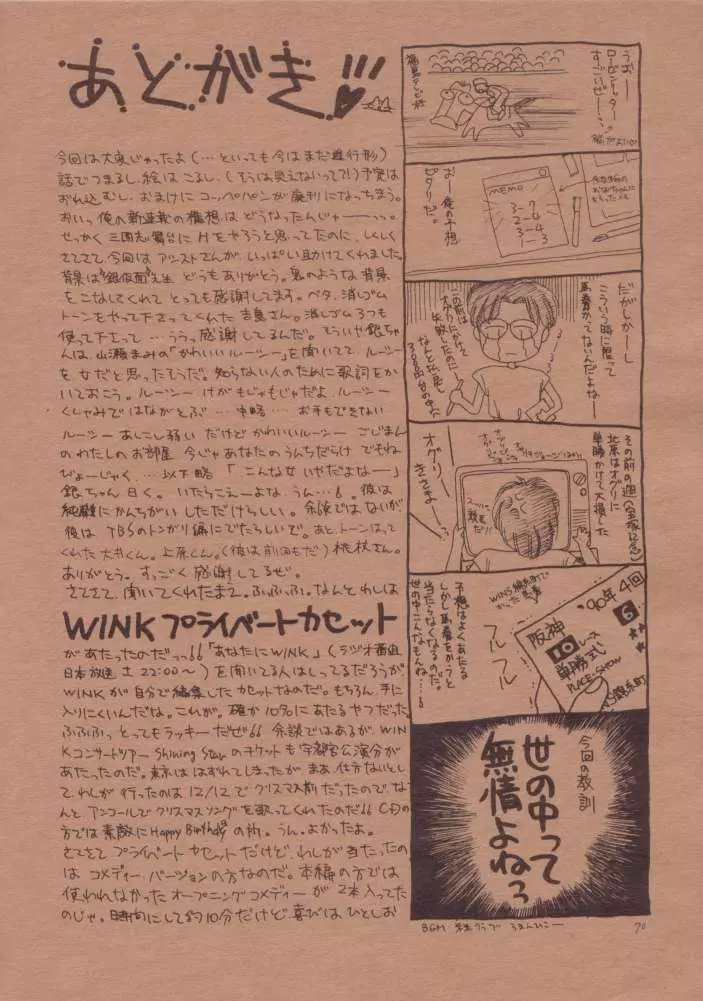 あとがき
今回は大変じゃったよ(…といっても今はまだ進行形)
話でつまるし、絵はこるし、(そうは見えないって?!)予定は
おれ込むし、おまけにコッペパンが廃刊になっちまう。
おいっ俺の新連載の構想はどうなったんじゃーーっっ。
せっかく三国志舞台にHをやろうと思ってたのに、しくしく
さてさて、今回はアシストさんが、いっぱい助けてくれました。
背景は"銀仮面"先生 どうもありがとう。鬼のような背景
をこなしてくれて とっても感謝してます。ベタ、消しゴム
トーンをやって下さってくれた 吉島さん。消しゴム3つも
使って下さって…ううっ感謝してるんだ。そういや銀ちゃ
んは、山瀬まみの「かわいいルーシー」を聞いてて ルーシー
を女だと思ったそうだ。知らない人のために歌詞をか
いておこう。ルーシー けがもじゃもじゃだよ ルーシー
くしゃみではながとぶ …中略… お手もできない
ルーシー あしこし弱い だけどかわいいルーシー ごじまん
のわたしのお部屋 今じゃあなたのうんちだらけ でもね
びょーじゃく…以下略 「こんな女いやだよなー」
銀ちゃん曰く。いたらこえーよな、うん…。彼は
純粋にかんちがいしただけらしい。余談ではないが
彼は TBSのトンガリ編にでたらしいで。あと、トーンはって
くれた 大井くん。上原くん。(彼は前回もだ) 桃杖さん。
ありがとう。すっごく感謝してるぜ。
さてさて、聞いてくれたまえ。ふふふふ。なんとわしは
WINK プライベートカセット
があたったのだっっ「あなたにWINK」(ラジオ番組
日本放送 土 22:00〜)を聞いてる人はしってるだろうが
WINKが自分で編集したカセットなのだ。もちろん、手に
入りにくいんだな。これが。確か10名にあたるやつだった。
ふふふふっ とってもラッキーだぜ 余談ではあるが WIN
Kコンサートツアー Shining Star のチケットも宇都宮公演分が
あたったのだ。東京ははずれてしまったが まあ、仕方ないとし
て、わしが行ったのは 12/12でクリスマス前だったので、な
んと アンコールで クリスマスソングを歌ってくれたのだ CDの
方では素敵にHappy Birthdayの所。うん。よかったよ。
さてさて プライベートカセットだけど、わしが当たったの
は コメディーバージョンの方なのだ。本編の方では
使われなかった オープニングコメディーが 2本入ってた
のじゃ。時間にして約10分だけど 喜びは ひとしお
うおーー
すごいぜーー…
福島テレビ杯
おー俺の予想
ピタリだ。
MEMO
3-7
2-4
4-4
1-3
だがしかーーし
こういう時に限って
馬券かってないんだよなー
この前は
オグリにかけて
失敗したのに
その前の週(宝塚記念)
北原はオグリに
単勝かけて大損した
オグリー
きさまーー
予想はよくあたる
しかし馬券をかうと
当たらなくなるのだ。
世の中こんなもんね…。
フルフル
'90年 4回
阪神
6
10レース
単勝式
PLACE-SHOW
WINS錦糸町
今回の教訓
世の中って
無情よねっ
BGM
70